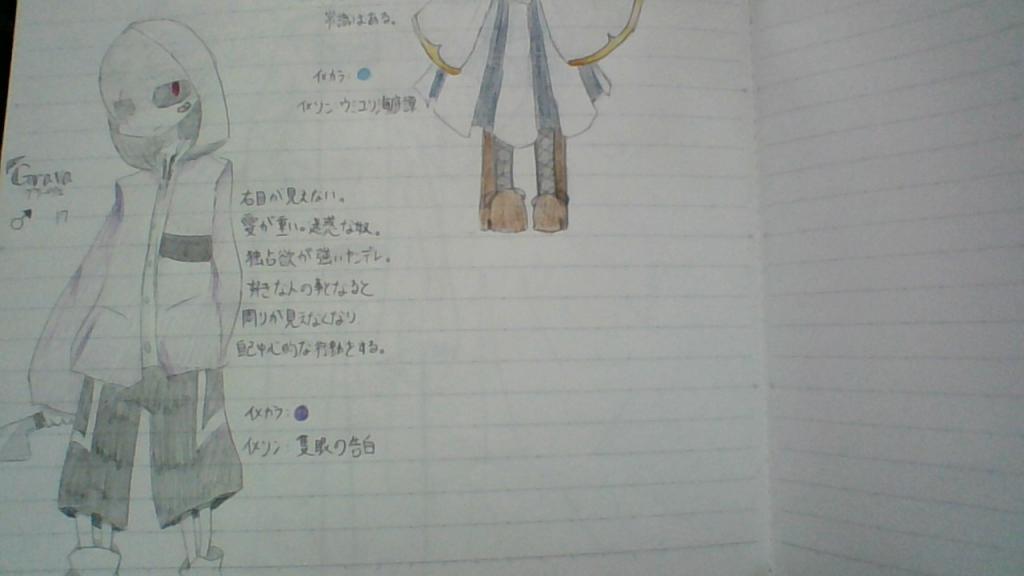 常識はある。
イメカラ:
イメソン:ウミユリ海底譚
♂ 17
右目が見えない。
愛が重い。迷惑な奴。
独占欲が強いヤンデレ。
好きな人の事となると
周りが見えなくなり
自己中心的な行動をする。
イメカラ:
イメソン:隻眼の告白